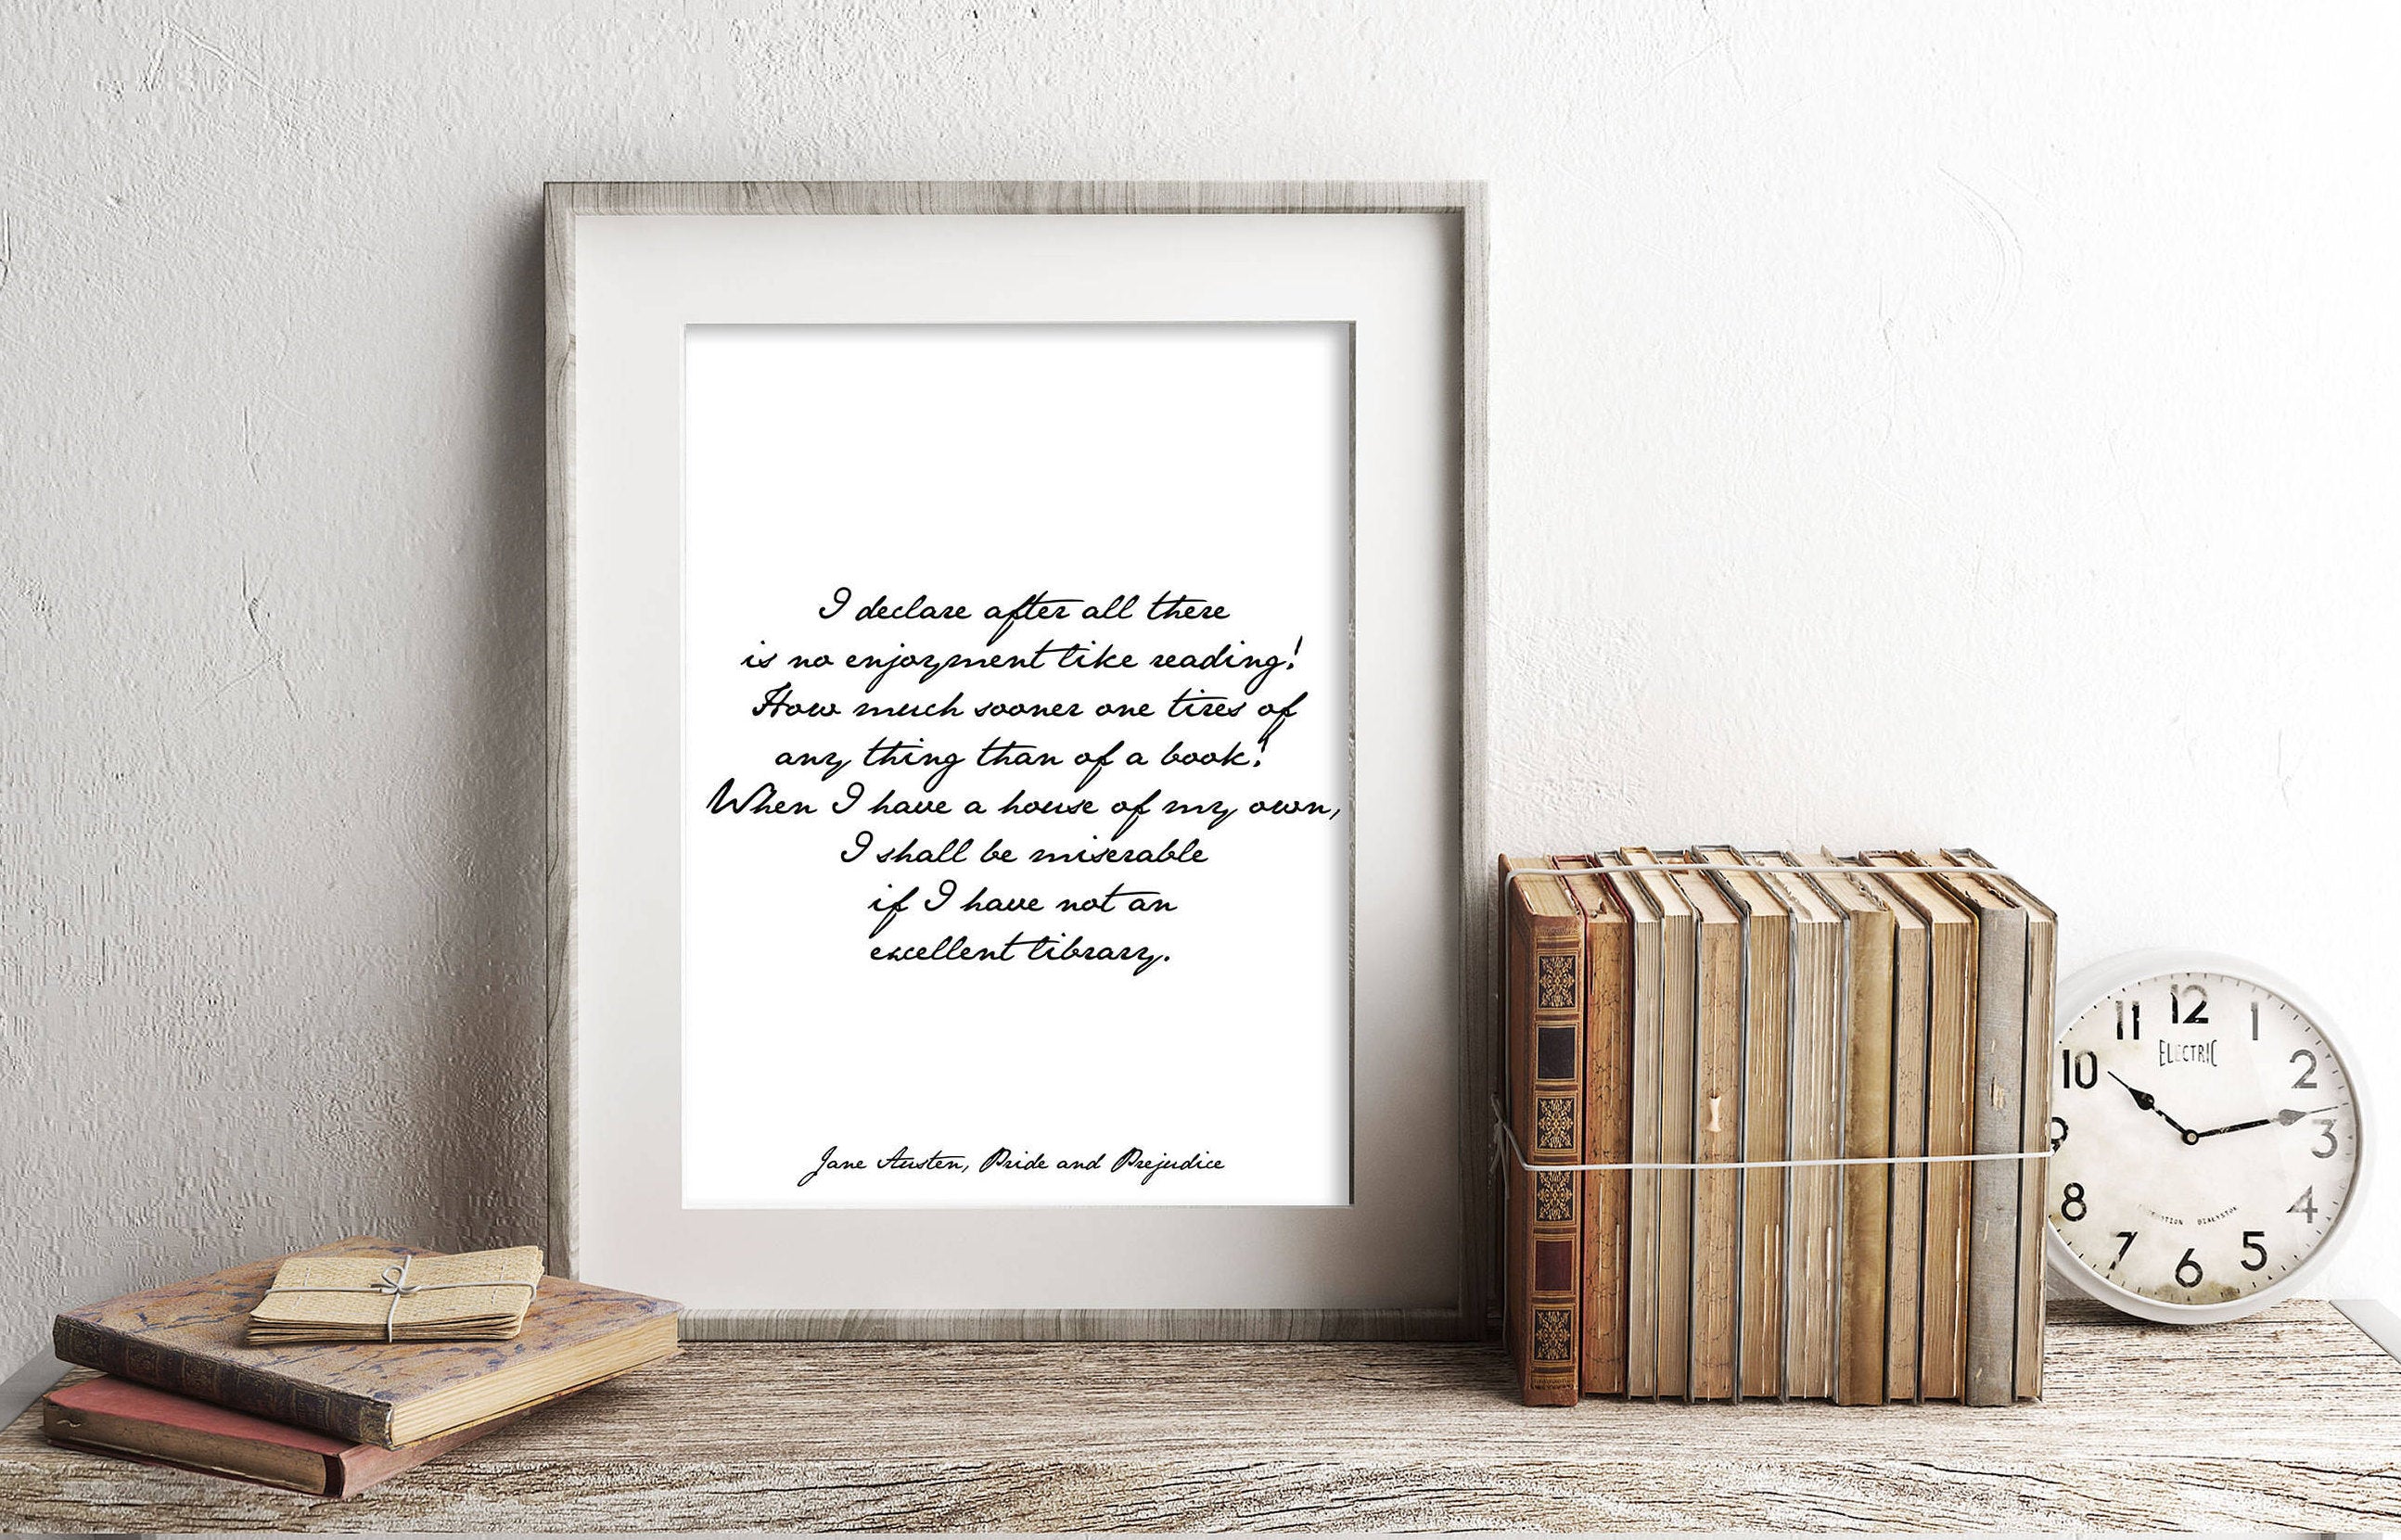 I declare after all there
is no enjoyment like reading!
How much sooner one tires of
any thing than of a book!
When I have a house of my own,
I shall be miserable
if I have not an
excellent library.
Jane Austen, Pride and Prejudice
12
11 1
ELECTRIC
10 2
9 3
8 4
7 5
6